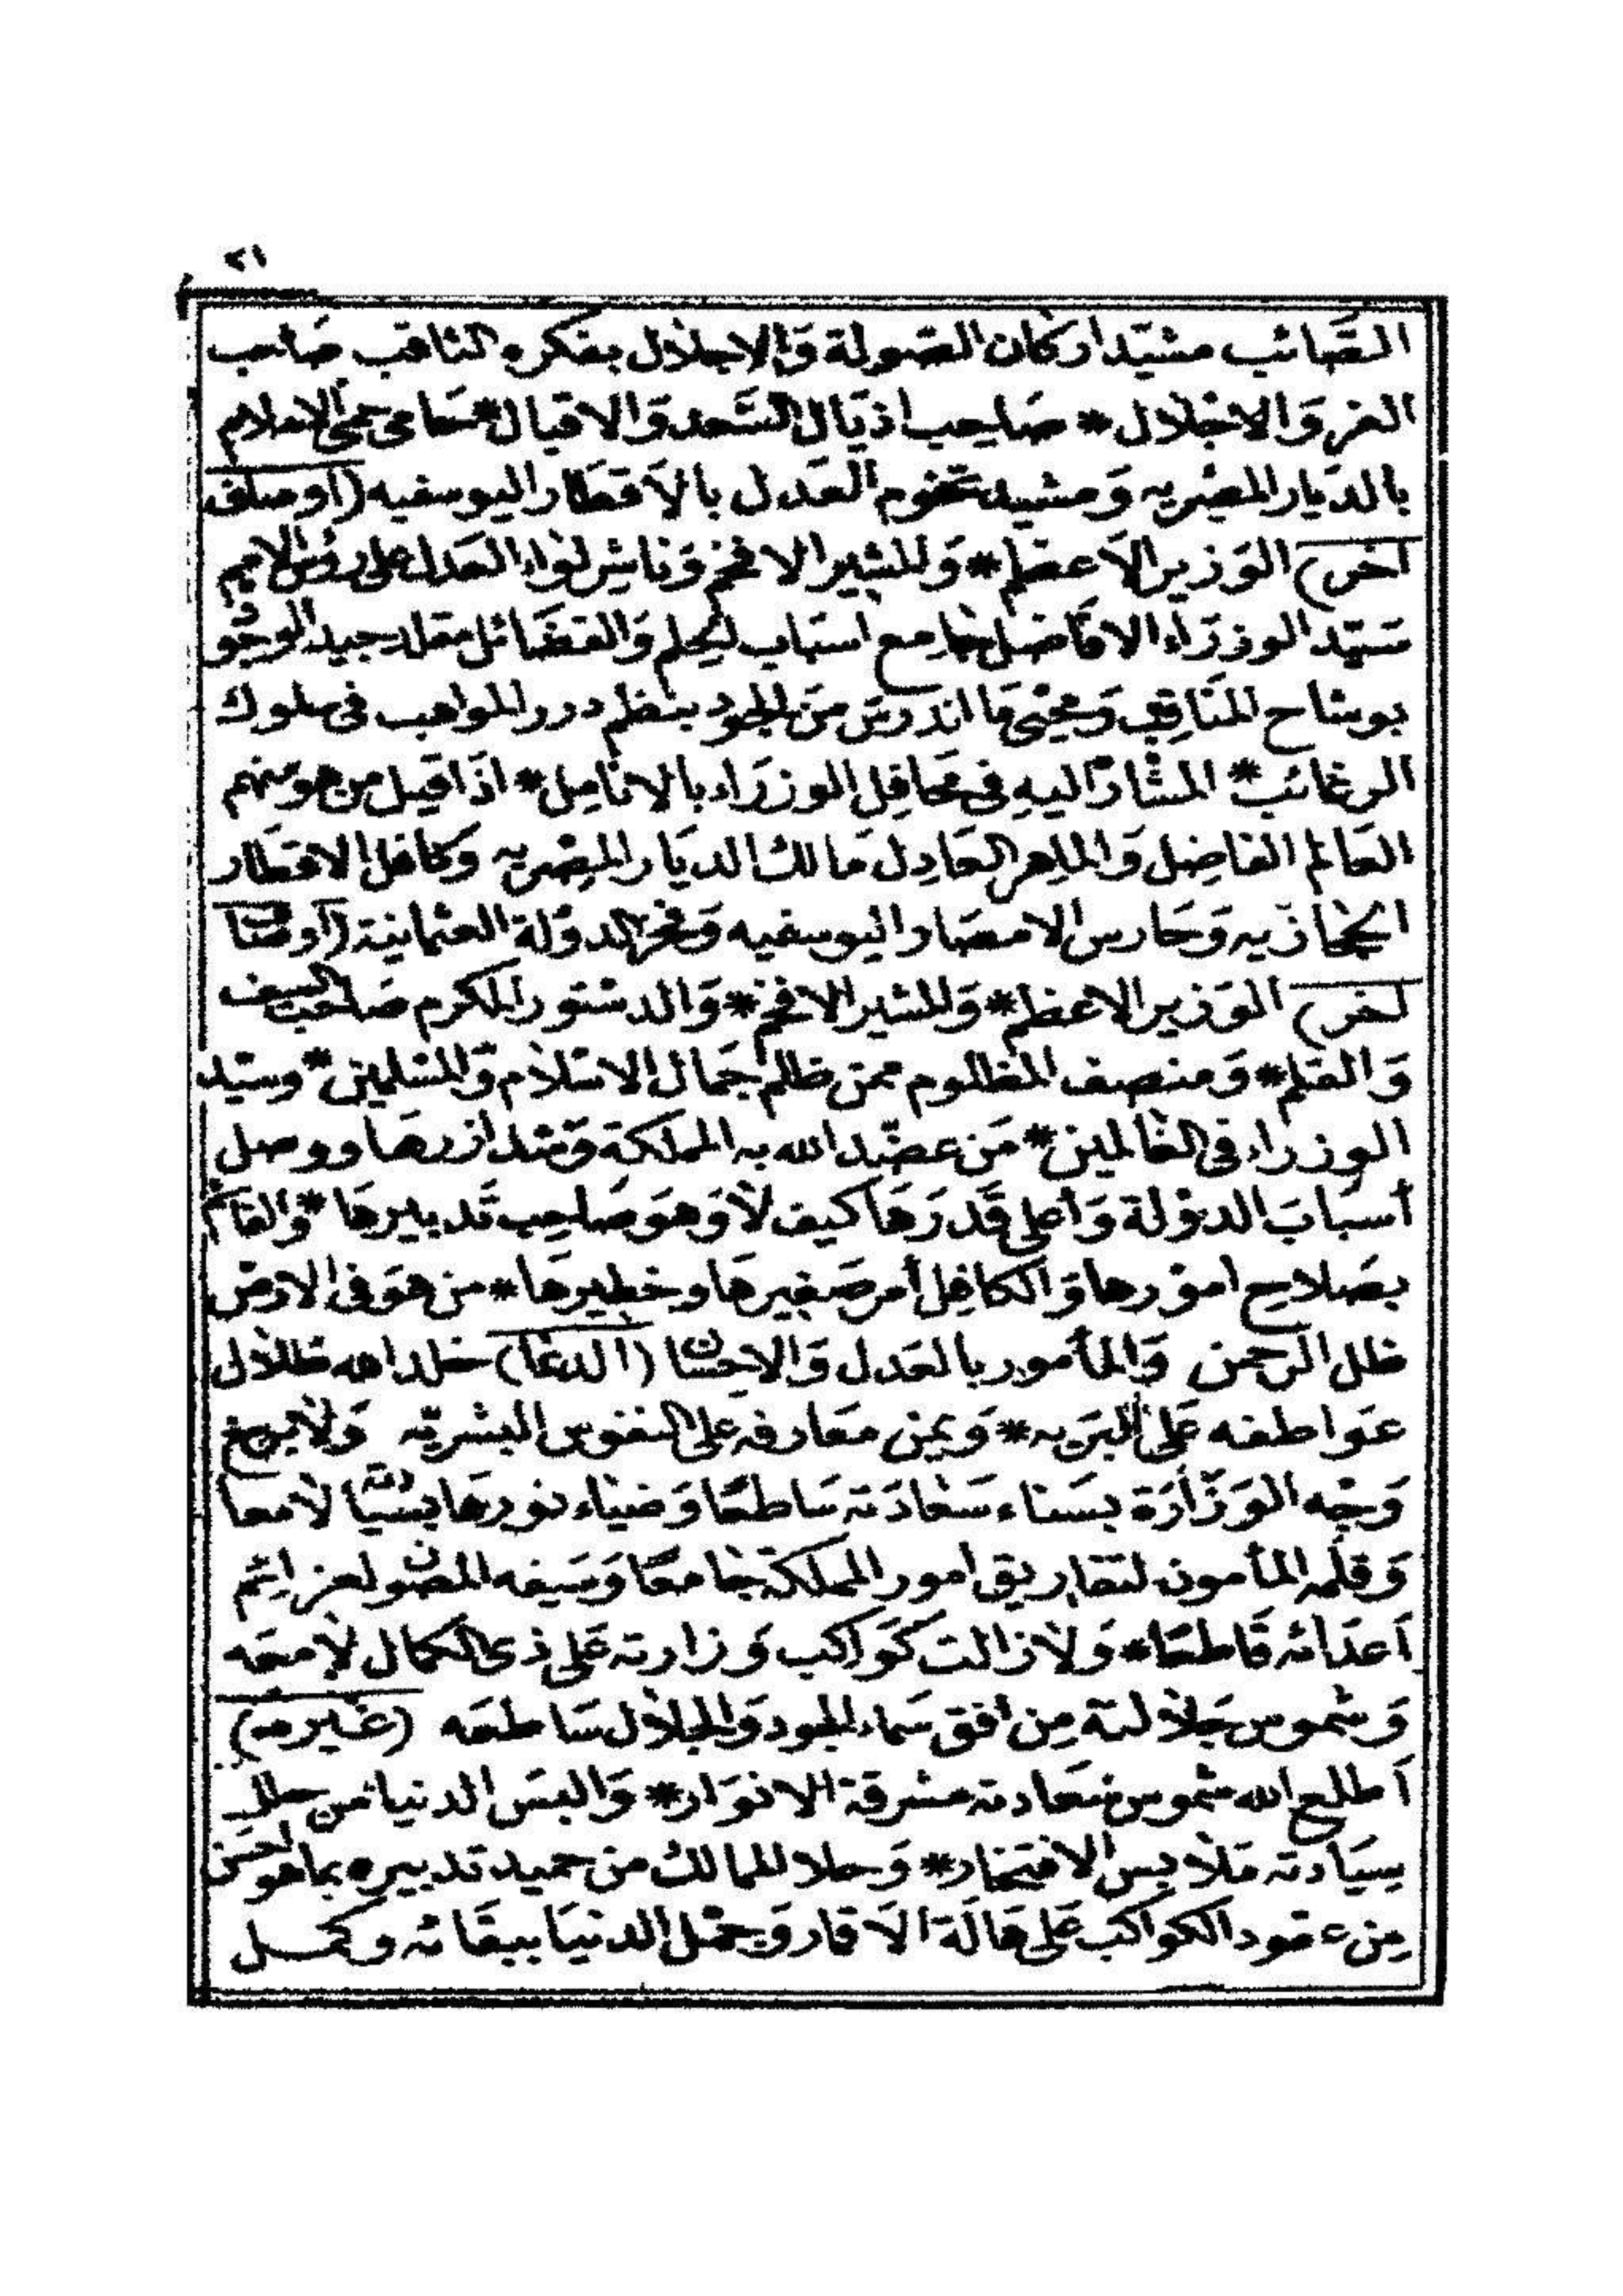 ٢١
الصَّائب مشيّد اركان الصّولة وَالاجلال بفكره الثاقب صَاحب
العز وَالاجلال * صَاحِب اذيَال السَّعد وَالاقبال * حَامى حمى الاسلام
بالديَار المصْريه وَمشيد تخوم العَدل بالاَقطَار اليوسفيه (أو صنف
آخر) الوَزير الاَعظم * وَالمشير الافخم وَناشر لوَاء العَدل على رؤس الامم
سَيّد الوزرَاء الافَاضل جَامع اسبَاب الحِلم وَالفضَائل مقلد جيد الوجو
بوشاح المنَاقِب وَمحيْى مَا اندرسَ منَ الجود بنظم درر المواهب فى سلوك
الرغائب * المشارُ اليهِ فى محَافِل الوزرَاء بالانامِل * اذَا قيل من هو منهم
العَالم الفاضِل وَالماهر العَادِل مَالك الديَار المِصْريه وَكافل الاقطَار
الحجَازيه وَحَارس الامصَار اليوسفيه وَفخر الدوْلة العثمانية (أو صنا
اخر) الوَزير الاعظم * وَالمشير الافخم * وَالدستور المكرم صَاحب السيف
وَالقلم * وَمنصف المظلوم ممن ظلم جمَال الاسْلام وَالمسْلمين * وسيّد
الوزراء فى العَالمين * مَن عضّد الله به المملكة وَشد ازرهَا ووصل
أسبَابَ الدوْلة وَأعلى قَدرَهَا كيف لاَ وَهوَ صَاحِب تَدبيرهَا * وَالقائم
بصَلاح امورها وَالكافِل أمر صَغيرهَا وخطيرهَا * من هوَ فى الارض
ظل الرحمن وَالمأمور بالعَدل وَالاحسَان (الدعَا) خلد الله ظلاَل
عوَاطفه عَلى البَريه * وَيمن معَارفه على النفوس البشريّه وَلاَ برح
وَجْه الوَزَارَة بسَناء سَعَادَته سَاطعًا وَضيَاء نورهَا بشيَا لاَمعا
وَقلمه المأمون لتفاريق امور المملكة جَامعًا وَسَيفه المصُون لعزائم
أعدَائه قَاطعًا * وَلاَ زالت كَوَاكب وَزارته عَلى ذى الكمال لاَمعَه
وَشموس جَلاَلتهَ مِن افق سَماء المجود وَالجلاَل سَاطعَه (غيره)
أطلع الله شموس سَعَادته مشرقة الانوَار * وَالبسَ الدنيا من حلل
سِيَادته مَلاَبس الافتخار * وَحلا للمالك من حميد تدبيره بما هو احسَن
مِن عقود الكواكب عَلى هَالَة الاَقمار وَجمّل الدنيَا ببقَائه وكمل